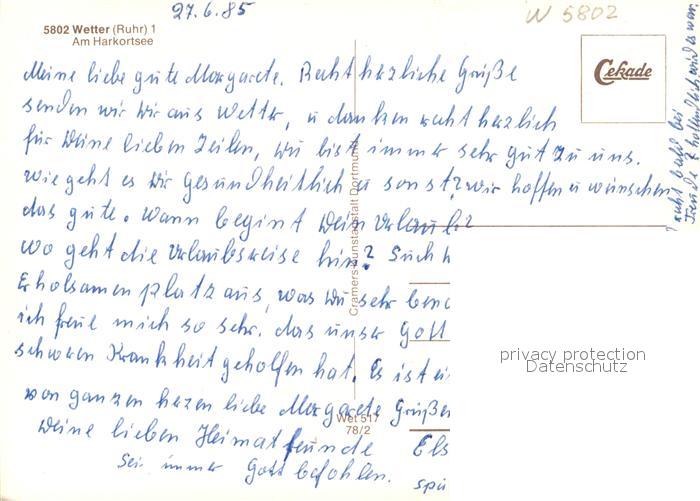 27.6.85
W 5802
5802 Wetter (Ruhr) 1
Am Harkortsee
Cekade
Meine liebe gute Margarete. Recht herzliche Grüße
senden wir Dir aus Wetter, u danken recht herzlich
für Deine lieben Zeilen, Du bist immer sehr gut zu uns.
wie geht es Dir gesundheitlich u sonst? wir hoffen u wünschen
das gute. Wann begint Dein Urlaub?
wo geht die Urlaubsreise hin? Such
Erholsamen platz aus, was Du sehr
ich freue mich so sehr. das unser Gott
schweren Krankheit geholfen hat. Es ist
von ganzen herzen liebe Margarete Grüßen
Deine lieben Heimatfreunde Els
Sei immer Gott befohlen.
recht bald bei
Cramers Kunstanstalt Dortmund
Wet 517
78/2
privacy protection
Datenschutz